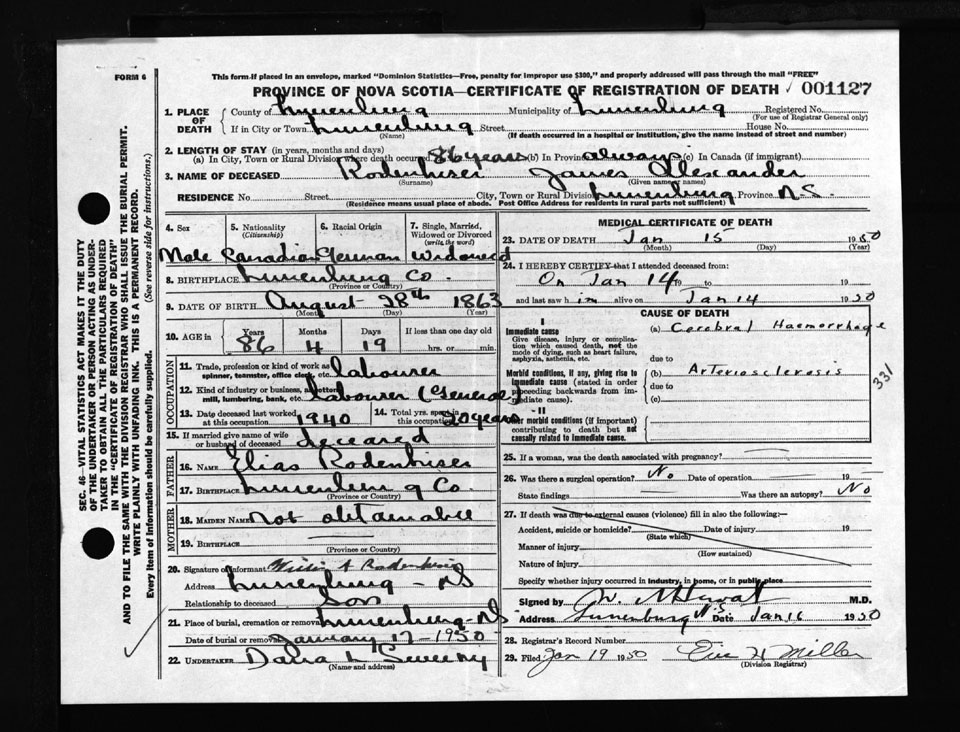 FORM 6
This form if placed in an envelope, marked "Dominion Statistics—Free, penalty for improper use $300," and properly addressed will pass through the mail "FREE"
PROVINCE OF NOVA SCOTIA—CERTIFICATE OF REGISTRATION OF DEATH 001127
SEC. 46—VITAL STATISTICS ACT MAKES IT THE DUTY
OF THE UNDERTAKER OR PERSON ACTING AS UNDER-
TAKER TO OBTAIN ALL THE PARTICULARS REQUIRED
IN THE "CERTIFICATE OF REGISTRATION OF DEATH"
AND TO FILE THE SAME WITH THE DIVISION REGISTRAR WHO SHALL ISSUE THE BURIAL PERMIT.
WRITE PLAINLY WITH UNFADING INK. THIS IS A PERMANENT RECORD.
Every item of Information should be carefully supplied. (See reverse side for instructions.)
1. PLACE OF DEATH County of Lunenburg Municipality of Lunenburg Registered No.
(For use of Registrar General only)
If in City or Town Lunenburg Street House No.
(Name) (If death occurred in a hospital or institution, give the name instead of street and number)
2. LENGTH OF STAY (in years, months and days)
(a) In City, Town or Rural Division where death occurred 86 years (b) In Province always (c) In Canada (if immigrant)
3. NAME OF DECEASED Rodenhiser James Alexander
(Surname) (Given name or names)
RESIDENCE No. Street City, Town or Rural Division Lunenburg Province N.S.
(Residence means usual place of abode. Post Office Address for residents in rural parts not sufficient)
4. Sex 5. Nationality (Citizenship) 6. Racial Origin 7. Single, Married, Widowed or Divorced (write the word)
Male Canadian German Widowed
8. BIRTHPLACE Lunenburg Co.
(Province or Country)
9. DATE OF BIRTH August 28th 1863
(Month) (Day) (Year)
10. AGE in Years Months Days If less than one day old
86 4 19 hrs. or min.
OCCUPATION
11. Trade, profession or kind of work as spinner, teamster, office clerk, etc. Labourer
12. Kind of industry or business, as cotton mill, lumbering, bank, etc. Labourer (General)
13. Date deceased last worked at this occupation 1940 14. Total yrs. spent in this occupation 20 years
15. If married give name of wife or husband of deceased deceased
FATHER
16. NAME Elias Rodenhiser
17. BIRTHPLACE Lunenburg Co.
(Province or Country)
MOTHER
18. MAIDEN NAME not obtainable
19. BIRTHPLACE
(Province or Country)
20. Signature of informant A Rodenhiser
Address Lunenburg - NS
Relationship to deceased Son
21. Place of burial, cremation or removal Lunenburg - NS
Date of burial or removal January 17 - 1950
22. UNDERTAKER L Sweeny
(Name and address)
MEDICAL CERTIFICATE OF DEATH
23. DATE OF DEATH Jan 15 1950
(Month) (Day) (Year)
24. I HEREBY CERTIFY that I attended deceased from:
On Jan 14 19 to 19
and last saw him alive on Jan 14 1950
CAUSE OF DEATH
I
Immediate cause (a) Cerebral Haemorrhage
Give disease, injury or complication which caused death, not the mode of dying, such as heart failure, asphyxia, asthenia, etc.
due to
Morbid conditions, if any, giving rise to immediate cause (stated in order proceeding backwards from immediate cause). (b) Arteriosclerosis
due to
(c)
331
II
Other morbid conditions (if important) contributing to death but not causally related to immediate cause.
25. If a woman, was the death associated with pregnancy?
26. Was there a surgical operation? No Date of operation 19
State findings Was there an autopsy? No
27. If death was due to external causes (violence) fill in also the following:—
Accident, suicide or homicide? Date of injury 19
(State which)
Manner of injury
(How sustained)
Nature of injury
Specify whether injury occurred in industry, in home, or in public place
Signed by M.D.
Address Lunenburg N.S. Date Jan 16 1950
28. Registrar's Record Number
29. Filed Jan 19 1950 H Miller
(Division Registrar)